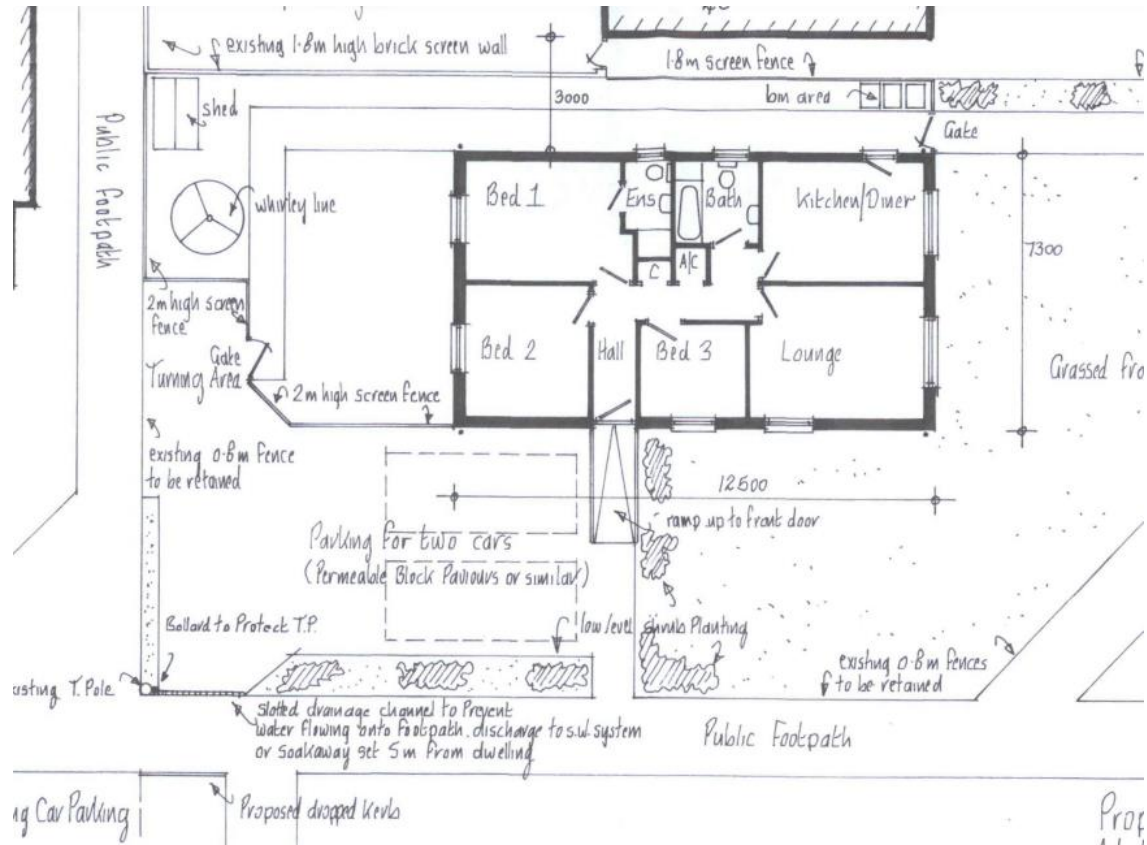 existing 1.8m high brick screen wall
1.8m screen fence
shed
3000
bin area
Gate
Public Footpath
whirley line
Bed 1
Ens
Bath
Kitchen/Diner
7300
C
A/C
2m high screen
fence
Gate
Turning Area
2m high screen fence
Bed 2
Hall
Bed 3
Lounge
Grassed fro
existing 0.8m fence
to be retained
12500
ramp up to front door
Parking for two cars
(Permeable Block Paviours or similar)
Bollard to Protect T.P.
low level shrub Planting
existing 0.8m fences
to be retained
isting T. Pole
slotted drainage channel to Prevent
water flowing onto footpath. discharge to s.w. system
or soakaway set 5m from dwelling
Public Footpath
ng Car Parking
Proposed dropped kerb
Prop